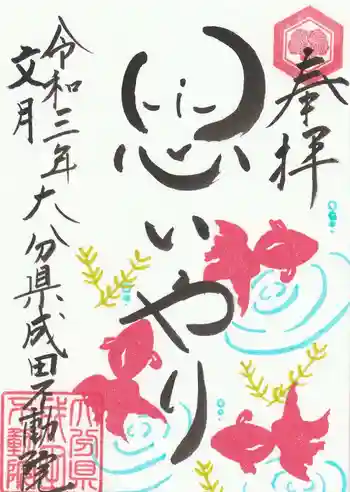 奉拝
思いやり
令和三年
文月
大分県成田不動院
大分県
成田
不動院